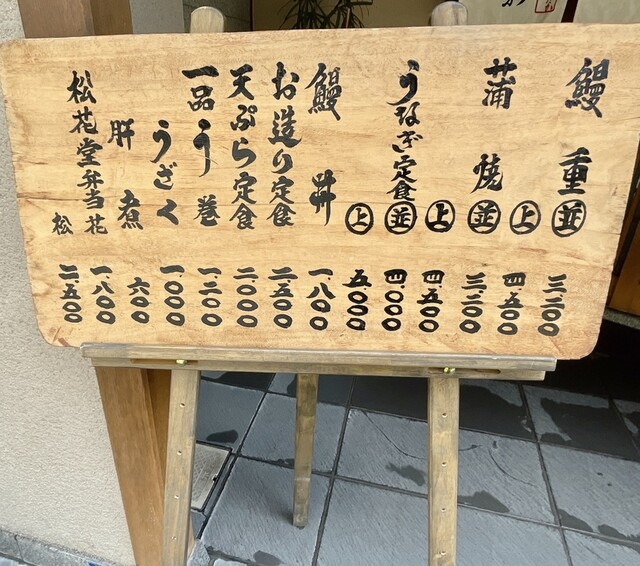 鰻重 並 三、二〇〇
上 四、五〇〇
蒲焼 並 三、二〇〇
上 四、五〇〇
うなぎ定食 並 四、〇〇〇
上 五、〇〇〇
鰻丼 一、八〇〇
お造り定食 二、五〇〇
天ぷら定食 二、〇〇〇
一品 う巻 一、二〇〇
うざく 一、〇〇〇
肝煮 六〇〇
松花堂弁当 花 一、八〇〇
松 二、五〇〇